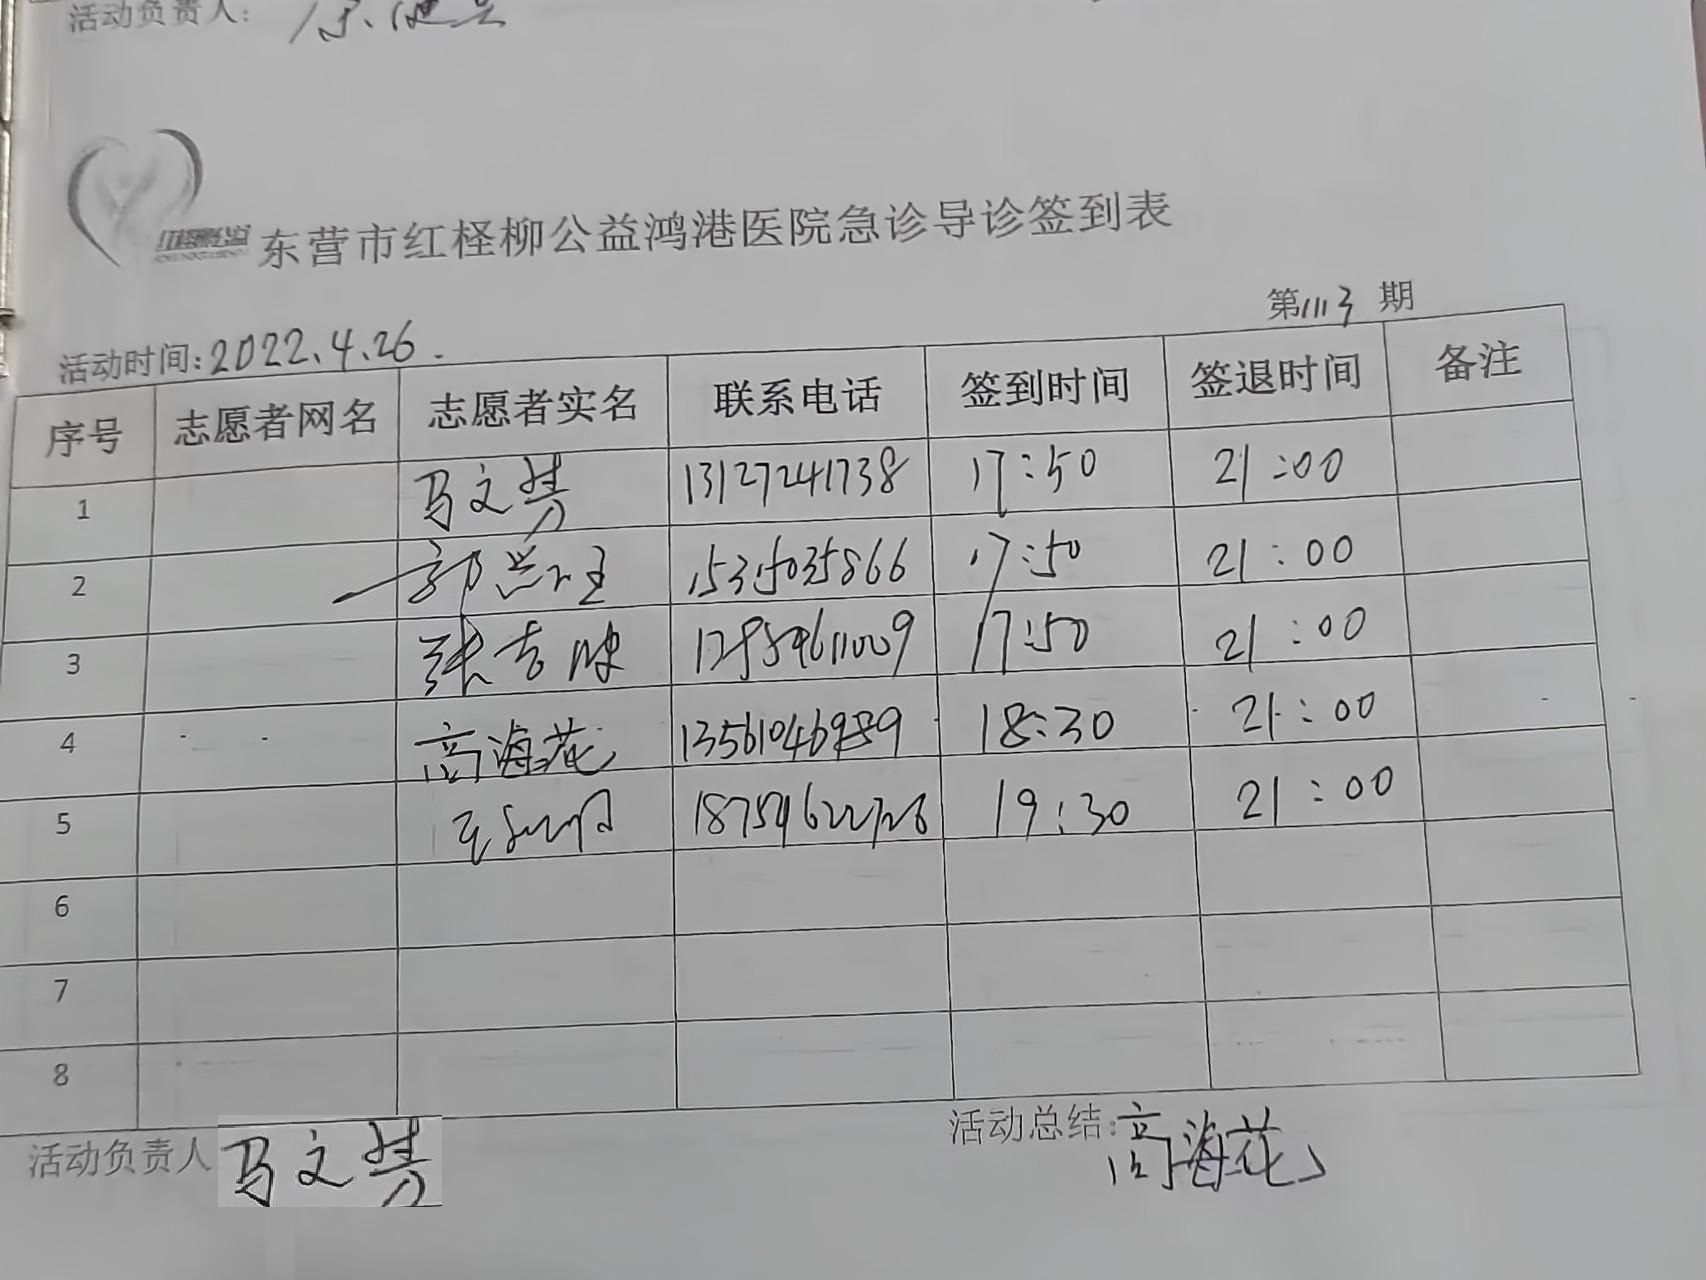 活动负责人:
东营市红柽柳公益鸿港医院急诊导诊签到表
第1113期
活动时间:2022.4.26.
序号 志愿者网名 志愿者实名 联系电话 签到时间 签退时间 备注
1 马文 13127241738 17:50 21:00
2 郭 15315035866 17:50 21:00
3 张 17:50 21:00
4 高海花 13561046989 18:30 21:00
5 王 18:30 21:00
6
7
8
活动负责人 马文
活动总结:高海花